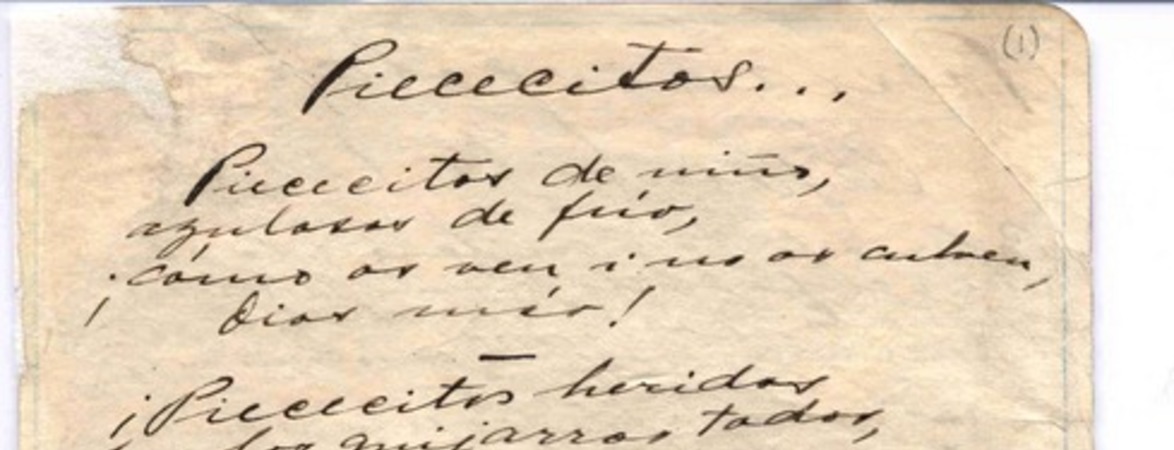 (1)
Piececitos...
Piececitos de niño,
azulosos de frío,
¡cómo os ven i no os cubren,
Dios mío!
¡Piececitos heridos
los guijarros todos,